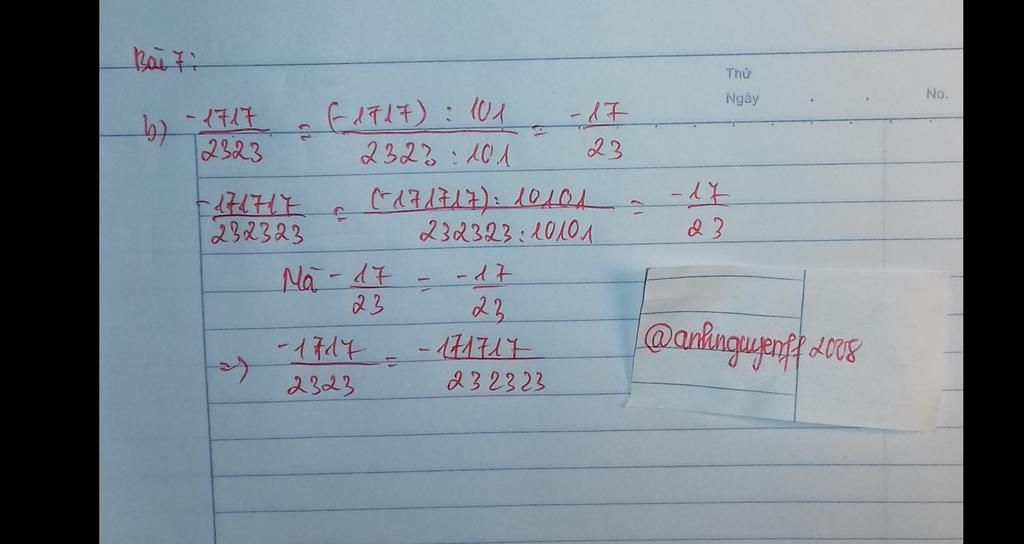 Bài 7:
Thứ
Ngày . . No.
b) -1717/2323 = (-1717) : 101/2323 : 101 = -17/23
-171717/232323 = (-171717) : 10101/232323 : 10101 = -17/23
Mà -17/23 = -17/23
=> -1717/2323 = -171717/232323
@anhnguyenff2008